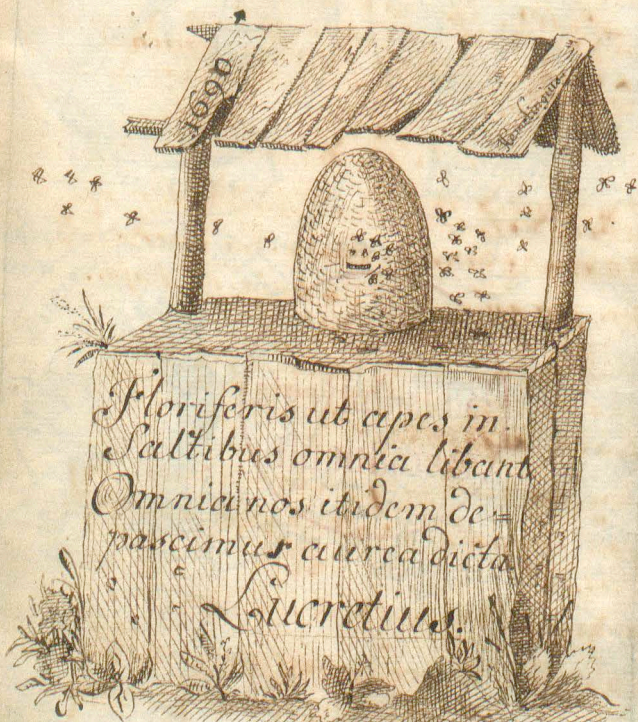 1690
Floriferis ut apes in
Saltibus omnia libant
Omnia nos itidem de-
pascimur aurea dicta
Lucretius.